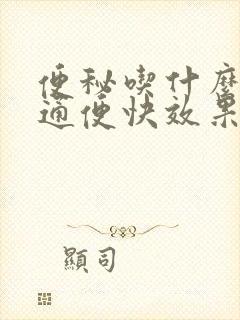 便秘喫什麽
通便快效果
顯司